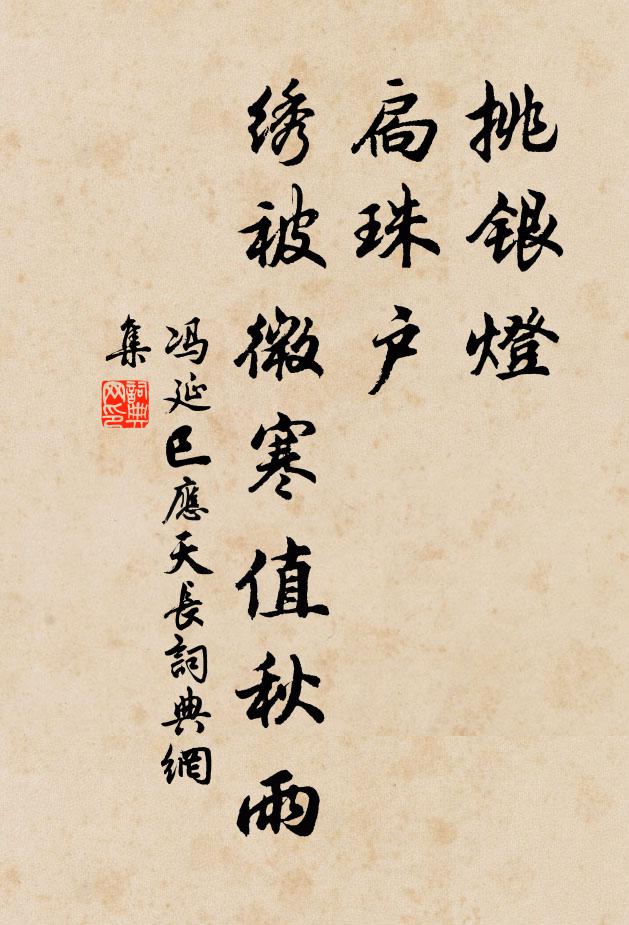 挑银燈
扃珠户
绣被微寒值秋雨
冯延巳應天長詞典網
集
詞典
网印